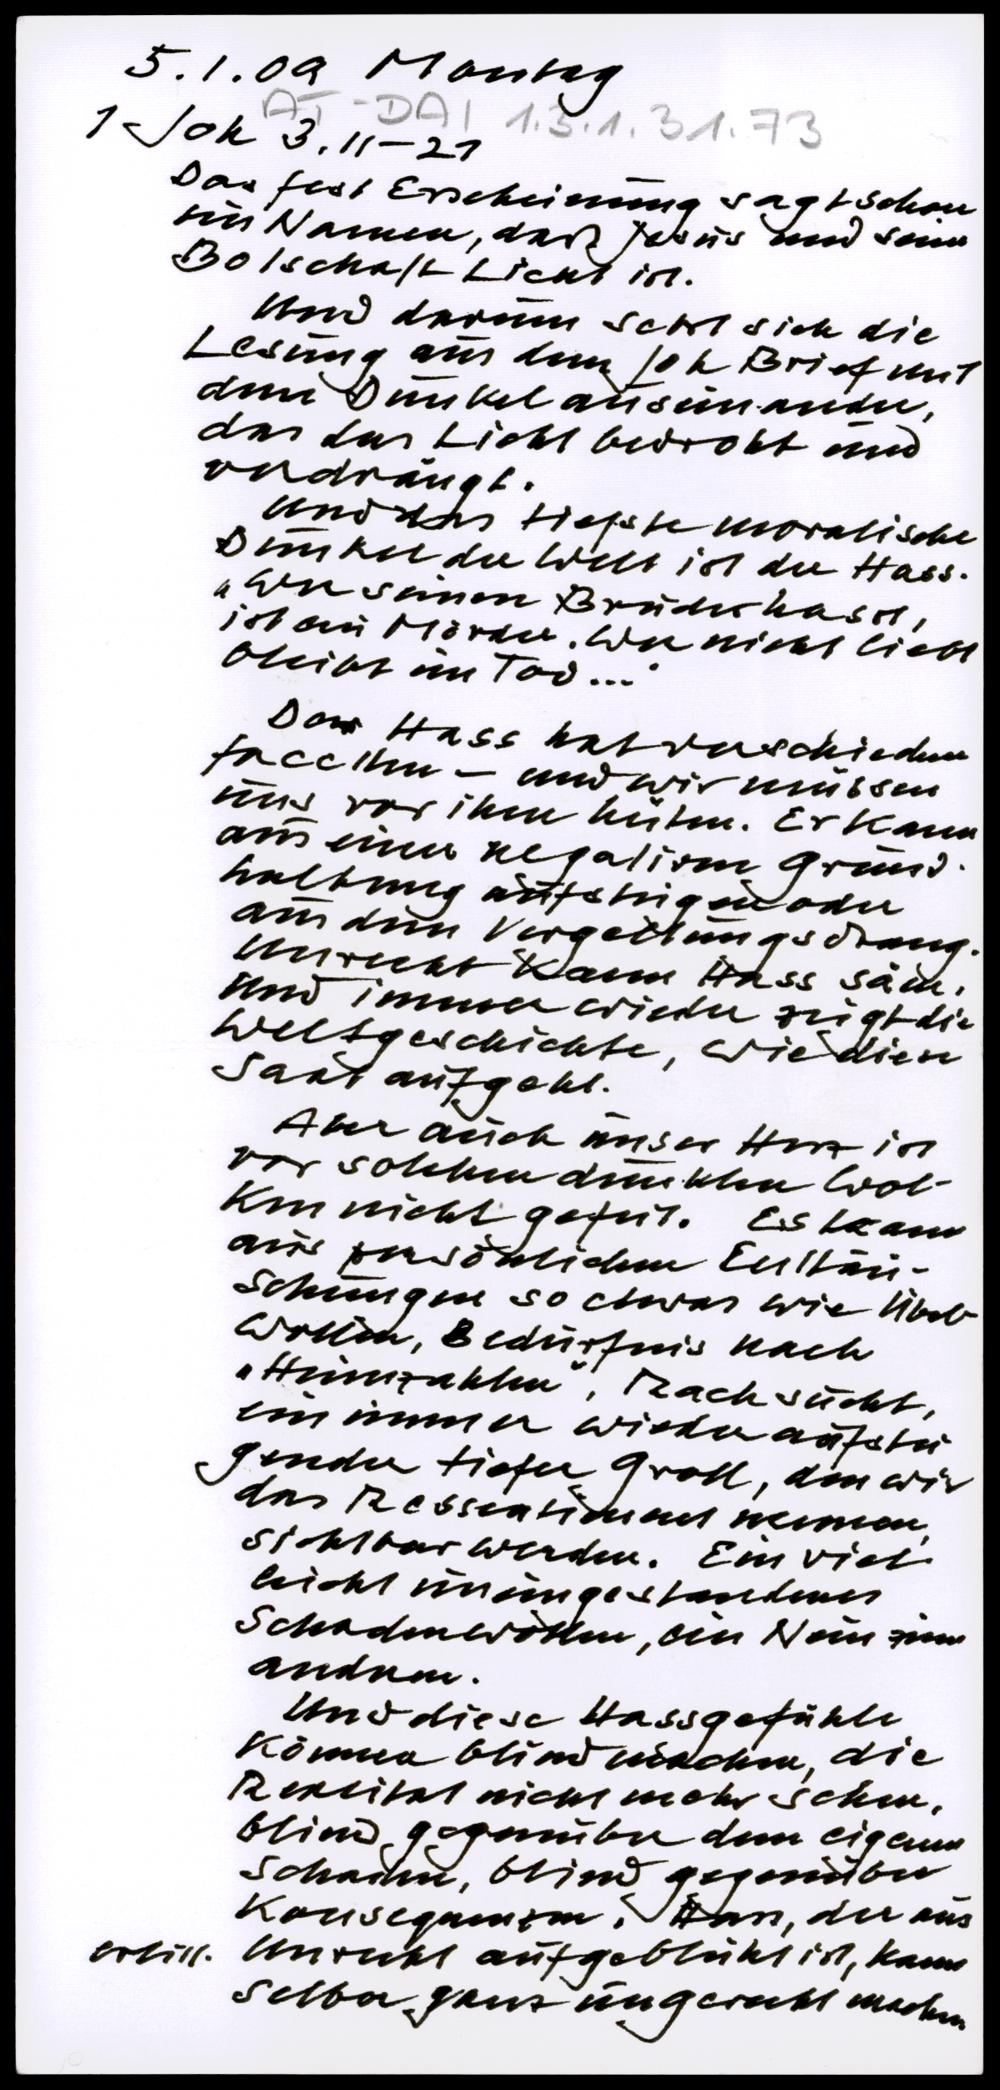 5.1.09 Montag
AT-DAI 1.3.1.31.73
1 Joh 3.11-21
Das fest Erscheinung sagt schon
im Namen, daß Jesus und seine
Botschaft Licht ist.
Und darum setzt sich die
Lesung aus dem Joh Brief mit
dem Dunkel auseinander,
das das Licht bedroht und
verdrängt.
Und das tiefste moralische
Dunkel der Welt ist der Hass.
"Wer seinen Bruder hasst,
ist ein Mörder. Wer nicht liebt
bleibt im Tod..."
Der Hass hat verschiedene
facetten - und wir müssen
uns vor ihm hüten. Er kann
aus einer negativen Grund-
haltung aufsteigen oder
aus dem Vergeltungsdrang.
Unrecht kann Hass säen.
Und immer wieder zeigt die
Weltgeschichte, wie diese
Saat aufgeht.
Aber auch unser Herz ist
vor solchen dunklen Wol-
ken nicht gefeit. Es kann
aus persönlichen Enttäu-
schungen so etwas wie Übel-
wollen, Bedürfnis nach
"Heimzahlen", Rachsucht,
ein immer wieder aufstei
gender tiefer Groll, den wir
das Ressentiment nennen,
sichtbar werden. Ein viel
leicht uneingestandenes
Schadenwollen, ein Nein zum
andern.
Und diese Hassgefühle
können blind machen, die
Realität nicht mehr sehen,
blind gegenüber dem eigenen
Schaden, blind gegenüber
Konsequenzen. Hass, der aus
erlitt. Unrecht aufgeblüht ist, kann
selber ganz ungerecht machen